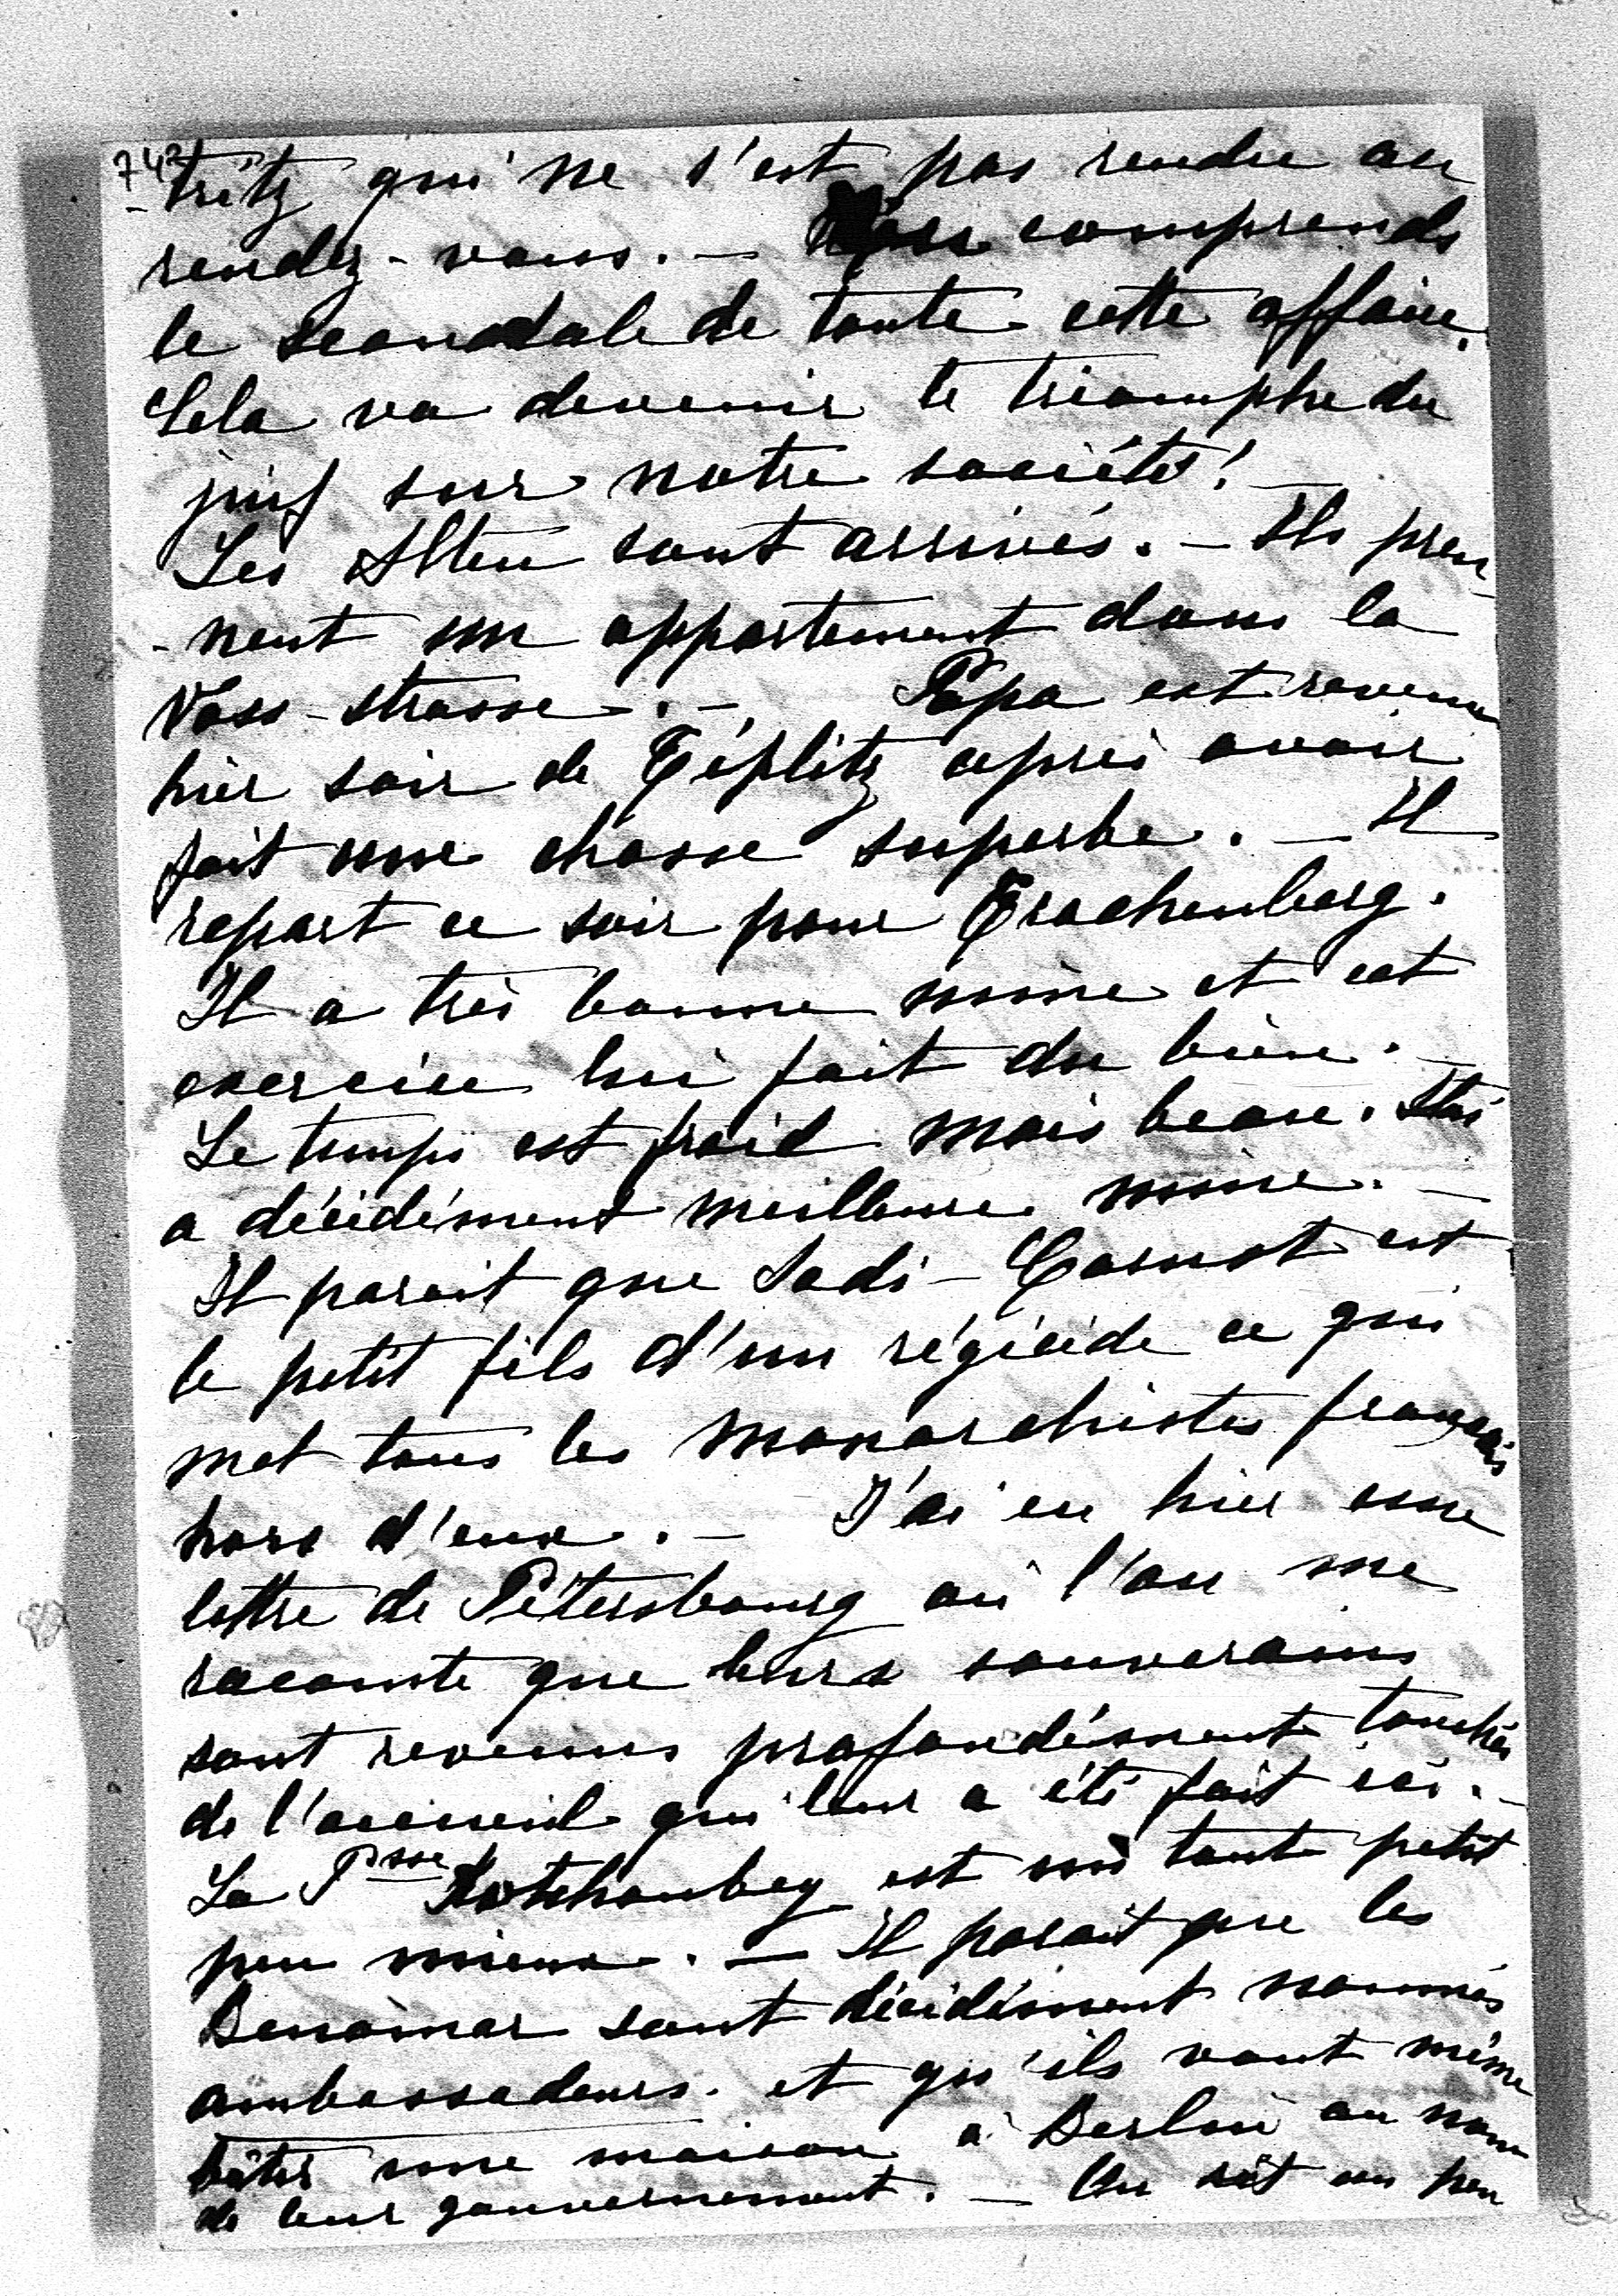 742
-tritz qui ne s'est pas rendu au
rendez-vous. — comprends
le scandale de toute cette affaire.
Cela va devenir le triomphe du
juif sur notre société! —
Les Alten sont arrivés. — Ils pren-
-nent un appartement dans la
Voss-strasse. — Papa est revenu
hier soir de Téplitz après avoir
fait une chasse superbe. — Il
repart ce soir pour Trachenberg.
Il a très bonne mine et cet
exercice lui fait du bien. —
Le temps est froid mais beau.
a décidément meilleure mine. —
Il parait que Sadi-Carnot est
le petit fils d'un régicide ce qui
met tous les monarchistes français
hors d'eux. — J'ai eu hier une
lettre de Pétersbourg où l'on me
raconte que leurs souverains
sont revenus profondément touchés
de l'accueil qui leur a été fait ici. —
La Psse Kotchoubey est un tout petit
peu mieux. — Il parait que les
Benomar sont décidément nommés
ambassadeurs. et qu'ils vont même
bâtir une maison à Berlin au nom
de leur gouvernement. — On rit un peu